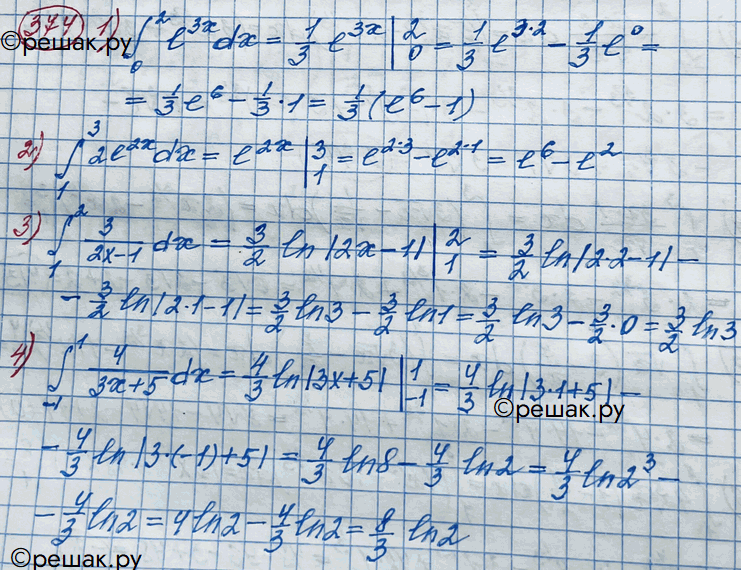 374 1) ∫₀² e^{3x} dx = 1/3 e^{3x} |₀² = 1/3 e^{3·2} − 1/3 e⁰ =
©решак.ру
= 1/3 e⁶ − 1/3·1 = 1/3 (e⁶ − 1)
2) ∫₁³ 2e^{2x} dx = e^{2x} |₁³ = e^{2·3} − e^{2·1} = e⁶ − e²
3) ∫₁² 3/(2x−1) dx = 3/2 ln |2x−1| |₁² = 3/2 ln|2·2−1| −
− 3/2 ln|2·1−1| = 3/2 ln3 − 3/2 ln1 = 3/2 ln3 − 3/2·0 = 3/2 ln3
4) ∫₋₁¹ 4/(3x+5) dx = 4/3 ln|3x+5| |₋₁¹ = 4/3 ln|3·1+5| −
©решак.ру
− 4/3 ln|3·(−1)+5| = 4/3 ln8 − 4/3 ln2 = 4/3 ln2³ −
− 4/3 ln2 = 4ln2 − 4/3 ln2 = 8/3 ln2
©решак.ру